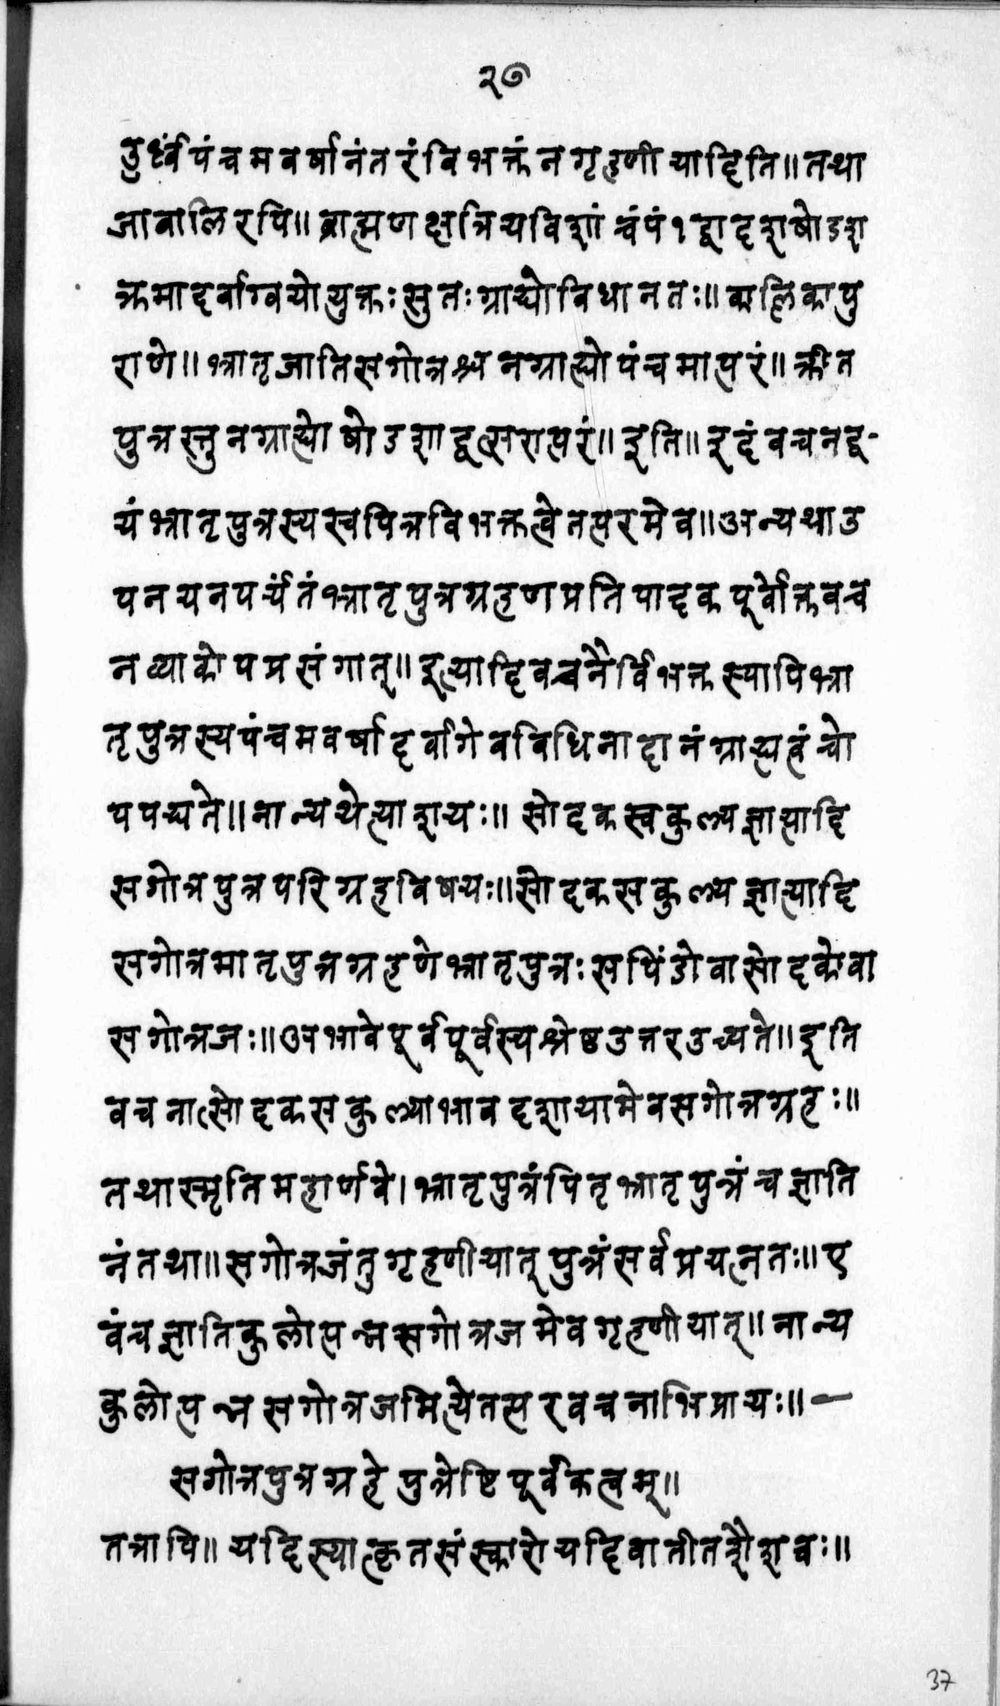 २७
उर्ध्वं पंचमवर्षानंतरं विभक्तं न गृह्णीयादिति॥ तथा
जाबालिरपि॥ ब्राह्मण क्षत्रियविशां चं पं १ द्वादशषोडश
क्रमादर्वाग्वयो युक्तः सुतः ग्राह्यो विधानतः॥ कालिकापु
राणे॥ भ्रातृजातिसगोत्रश्च न ग्राह्यो पंचमात्परं॥ क्रीत
पुत्रस्तु न ग्राह्यो षोडशाद्वत्सरात्परं॥ इति॥ इदं वचनद्व-
यं भ्रातृपुत्रस्य स्वपित्रविभक्तत्वे तत्परमेव॥ अन्यथा उ
पनयनपर्यंतं भ्रातृपुत्रग्रहणप्रतिपादक पूर्वोक्तवच
नव्याकोपप्रसंगात्॥ इत्यादिवचनैर्विभक्तस्यापि भ्रा
तृपुत्रस्य पंचमवर्षादर्वागेव विधिनादानं ग्राह्यत्वं चो
पपद्यते॥ नान्यथेत्याशयः॥ सोदकस्वकुल्यज्ञात्यादि
सगोत्रपुत्रपरिग्रहविषयः॥ सोदकसकुल्यज्ञात्यादि
सगोत्रमातृपुत्रग्रहणे भ्रातृपुत्रः सपिंडो वा सोदको वा
सगोत्रजः॥ अभावे पूर्वपूर्वस्य श्रेष्ठ उत्तर उच्यते॥ इति
वचनात्सोदकसकुल्याभावदशायामेव सगोत्रग्रहः॥
तथा स्मृतिमहार्णवे। भ्रातृपुत्रं पितृभ्रातृपुत्रं च ज्ञाति
नं तथा॥ सगोत्रजं तु गृह्णीयात् पुत्रं सर्वप्रयत्नतः॥ ए
वं च ज्ञातिकुलोत्पन्नसगोत्रजमेव गृह्णीयात्॥ नान्य
कुलोत्पन्न सगोत्रजमित्येतत्परवचनाभिप्रायः॥ —
सगोत्रपुत्रग्रहे पुत्रेष्टिपूर्वकत्वम्॥
तत्रापि॥ यदि स्यात्कृतसंस्कारो यदि वातीतशैशवः॥
37